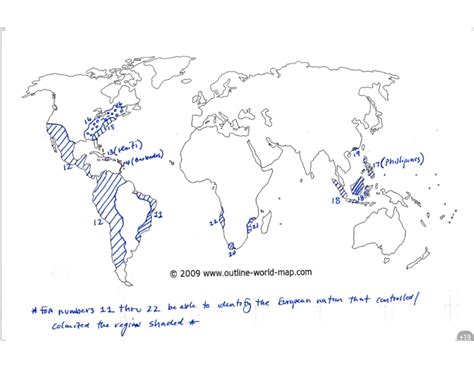 16
16
15
13(Haiti)
14(Barbados)
12
12
11
19
17(Phillipines)
18
18
19
20
© 2009 www.outline-world-map.com
* For numbers 11 thru 22 be able to identify the European nation that controlled/
colonized the region shaded *
+19